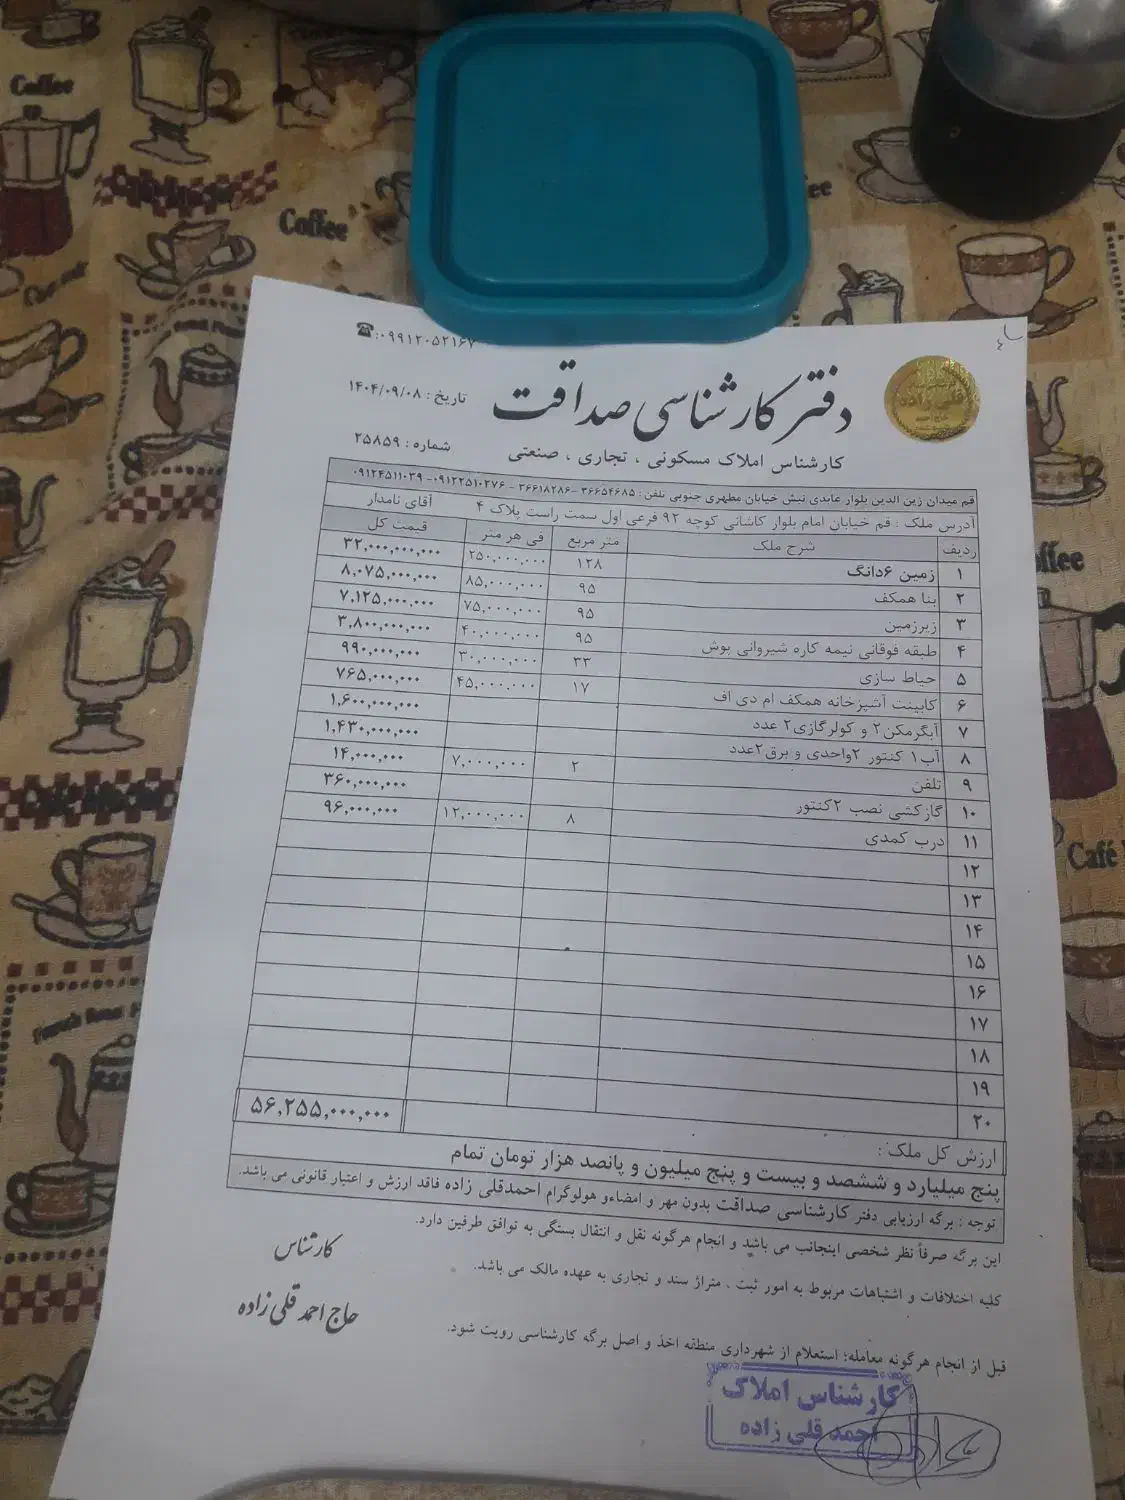 Coffee
Coffee
☎:۰۹۹۱۲۰۵۲۱۶۷
دفتر کارشناسی صداقت
تاریخ : ۱۴۰۴/۰۹/۰۸
کارشناس املاک مسکونی ، تجاری ، صنعتی
شماره : ۲۵۸۵۹
قم میدان زین الدین بلوار عابدی نبش خیابان مطهری جنوبی تلفن : ۳۶۶۵۴۶۸۵ - ۳۶۶۱۸۲۸۶ - ۰۹۱۲۲۵۱۰۲۷۶ - ۰۹۱۲۴۵۱۱۰۳۹
آدرس ملک : قم خیابان امام بلوار کاشانی کوچه ۹۲ فرعی اول سمت راست پلاک ۴ آقای نامدار
ردیف شرح ملک متر مربع فی هر متر قیمت کل
۱ زمین ۶دانگ ۱۲۸ ۲۵۰,۰۰۰,۰۰۰ ۳۲,۰۰۰,۰۰۰,۰۰۰
۲ بنا همکف ۹۵ ۸۵,۰۰۰,۰۰۰ ۸,۰۷۵,۰۰۰,۰۰۰
۳ زیرزمین ۹۵ ۷۵,۰۰۰,۰۰۰ ۷,۱۲۵,۰۰۰,۰۰۰
۴ طبقه فوقانی نیمه کاره شیروانی پوش ۹۵ ۴۰,۰۰۰,۰۰۰ ۳,۸۰۰,۰۰۰,۰۰۰
۵ حیاط سازی ۳۳ ۳۰,۰۰۰,۰۰۰ ۹۹۰,۰۰۰,۰۰۰
۶ کابینت آشپزخانه همکف ام دی اف ۱۷ ۴۵,۰۰۰,۰۰۰ ۷۶۵,۰۰۰,۰۰۰
۷ آبگرمکن۲ و کولرگازی۲ عدد ۱,۶۰۰,۰۰۰,۰۰۰
۸ آب۱ کنتور ۲واحدی و برق۲عدد ۱,۴۳۰,۰۰۰,۰۰۰
۹ تلفن ۲ ۷,۰۰۰,۰۰۰ ۱۴,۰۰۰,۰۰۰
۱۰ گازکشی نصب ۲کنتور ۳۶۰,۰۰۰,۰۰۰
۱۱ درب کمدی ۸ ۱۲,۰۰۰,۰۰۰ ۹۶,۰۰۰,۰۰۰
۱۲
۱۳
۱۴
۱۵
۱۶
۱۷
۱۸
۱۹
۲۰ ۵۶,۲۵۵,۰۰۰,۰۰۰
ارزش کل ملک :
پنج میلیارد و ششصد و بیست و پنج میلیون و پانصد هزار تومان تمام
توجه : برگه ارزیابی دفتر کارشناسی صداقت بدون مهر و امضاءو هولوگرام احمدقلی زاده فاقد ارزش و اعتبار قانونی می باشد.
این برگه صرفاً نظر شخصی اینجانب می باشد و انجام هرگونه نقل و انتقال بستگی به توافق طرفین دارد.
کلیه اختلافات و اشتباهات مربوط به امور ثبت ، متراژ سند و تجاری به عهده مالک می باشد.
قبل از انجام هرگونه معامله؛ استعلام از شهرداری منطقه اخذ و اصل برگه کارشناسی رویت شود.
کارشناس
حاج احمد قلی زاده
کارشناس املاک
احمد قلی زاده
Café